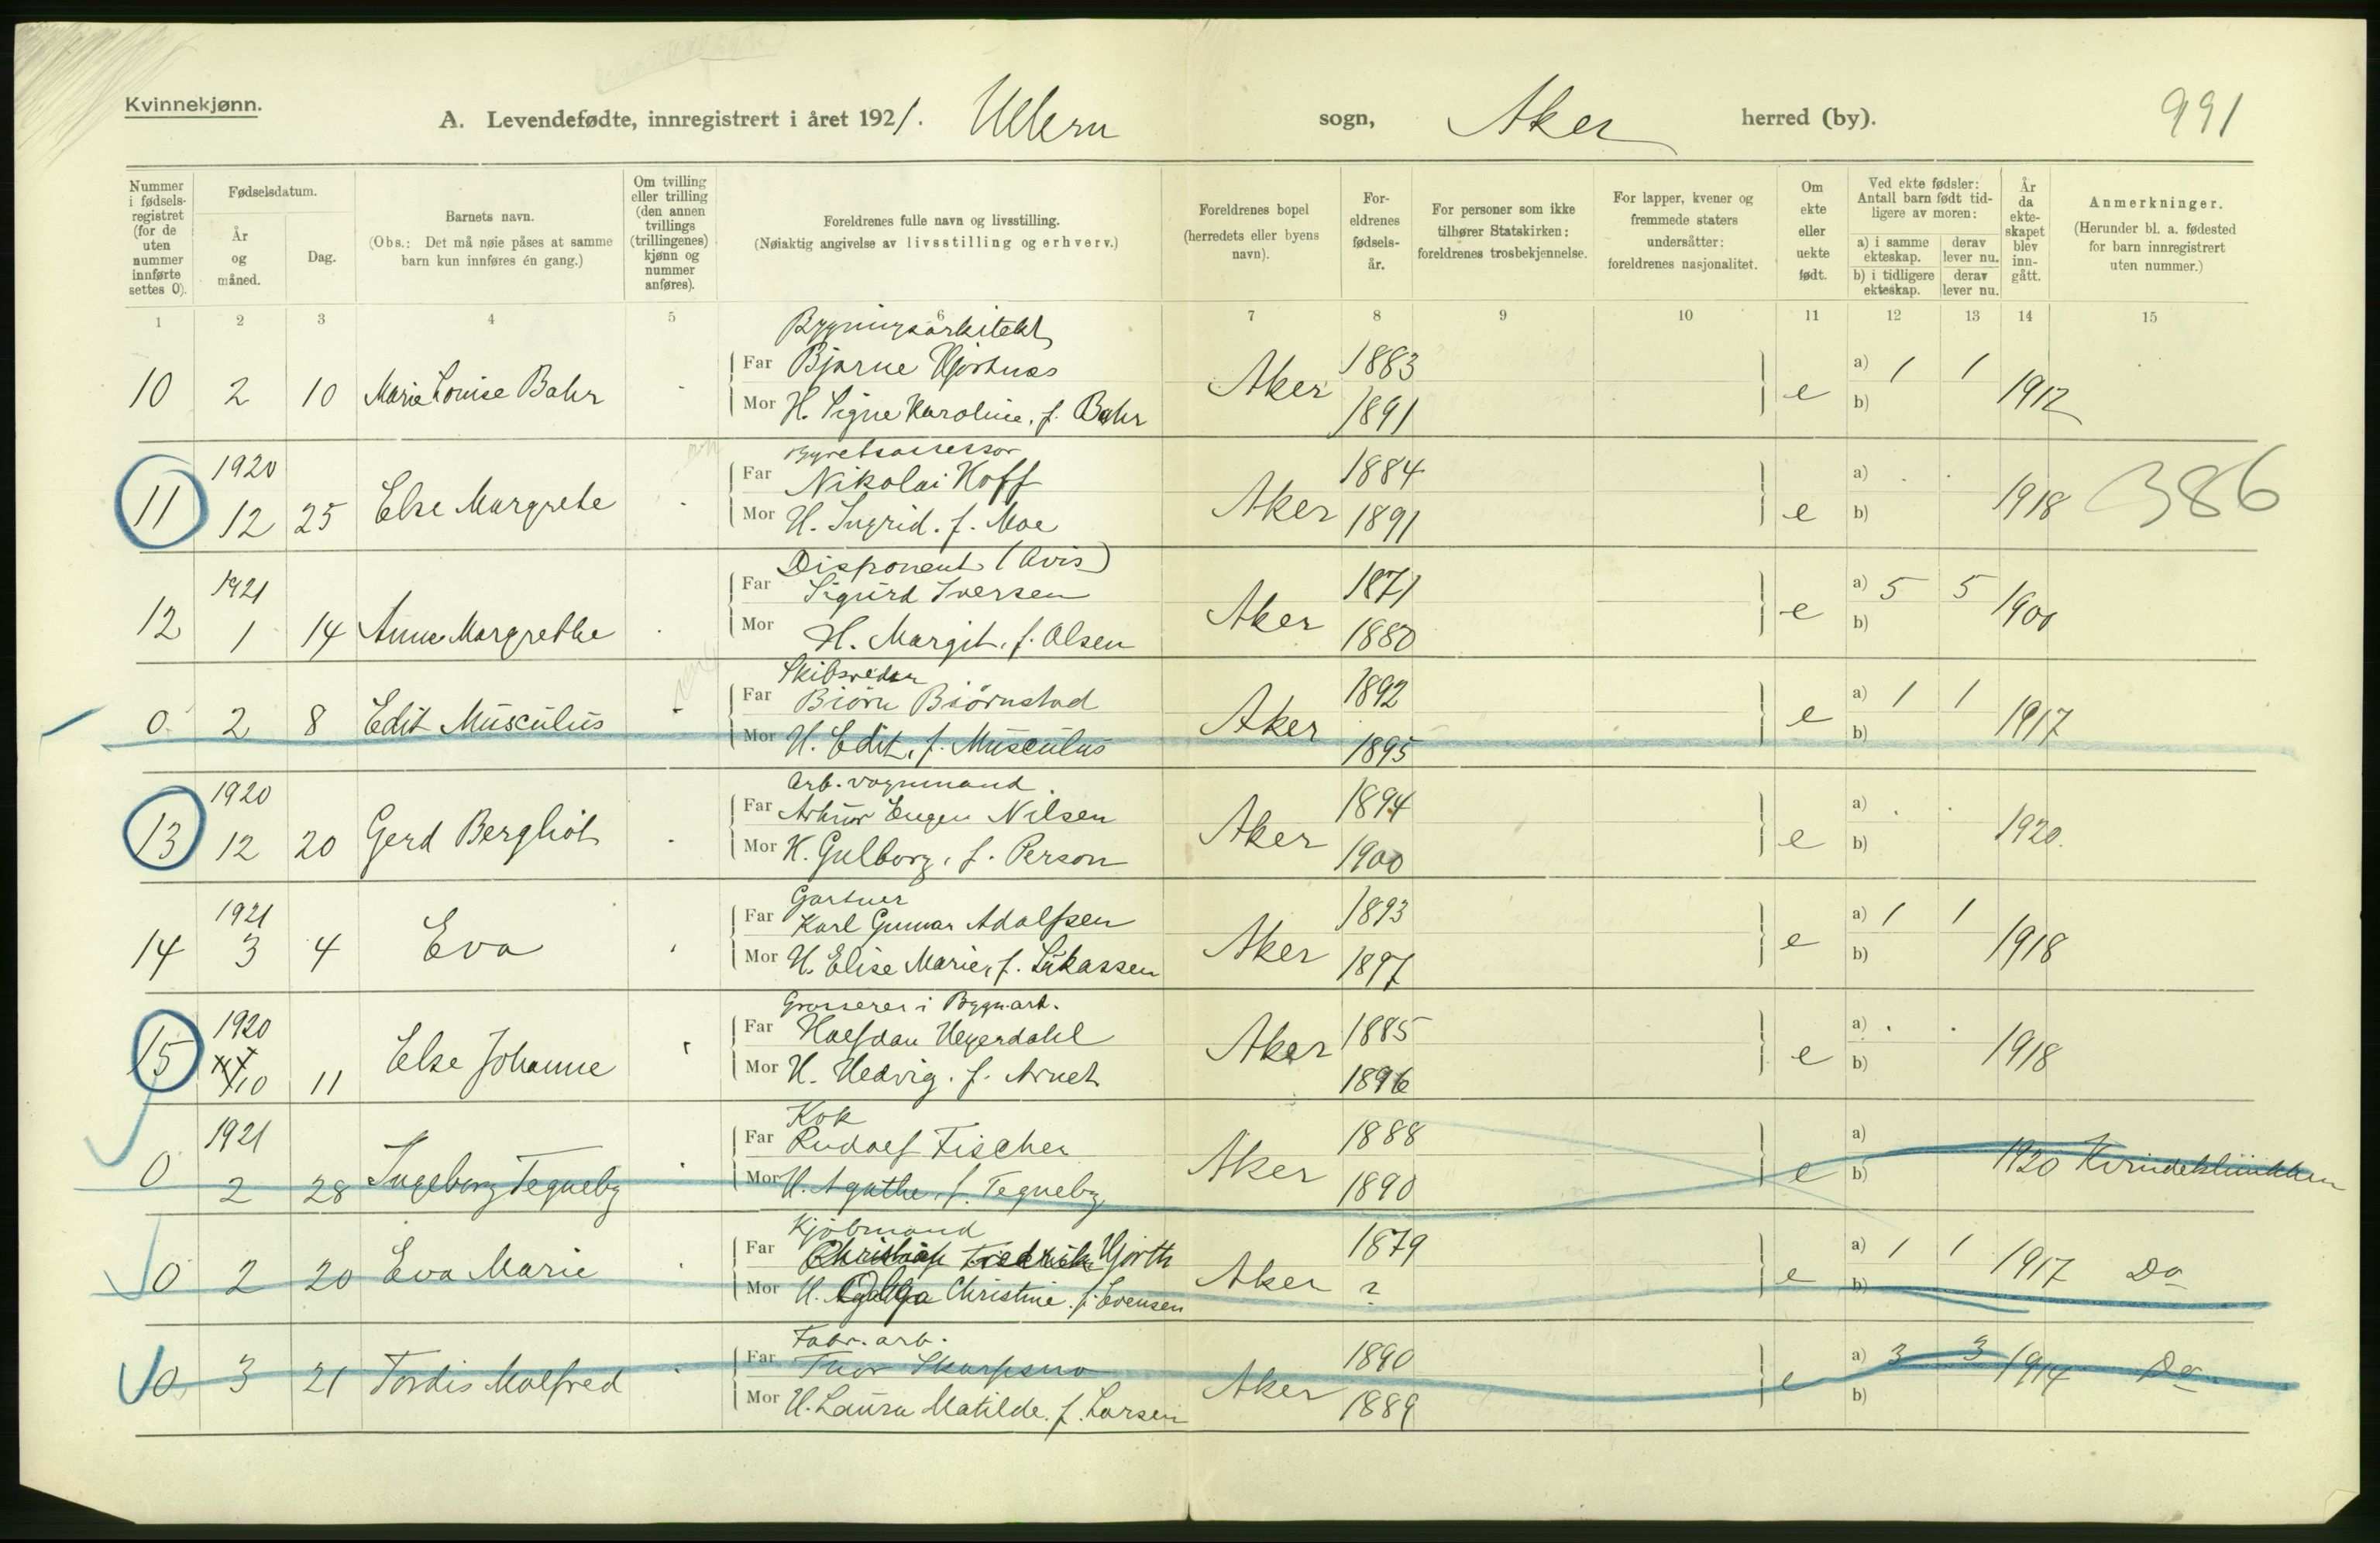 Kvinnekjønn.
A. Levendefødte, innregistrert i året 1921. Ullern sogn, Aker herred (by). 991
Nummer i fødselsregistret (for de uten nummer innførte settes 0).
Fødselsdatum.
År og måned.
Dag.
Barnets navn.
(Obs.: Det må nøie påses at samme barn kun innføres én gang.)
Om tvilling eller trilling (den annen tvillings (trillingenes) kjønn og nummer anføres).
Foreldrenes fulle navn og livsstilling.
(Nøiaktig angivelse av livsstilling og erhverv.)
Foreldrenes bopel (herredets eller byens navn).
Foreldrenes fødselsår.
For personer som ikke tilhører Statskirken: foreldrenes trosbekjennelse.
For lapper, kvener og fremmede staters undersåtter: foreldrenes nasjonalitet.
Om ekte eller uekte født.
Ved ekte fødsler: Antall barn født tidligere av moren:
a) i samme ekteskap. derav lever nu.
b) i tidligere ekteskap. derav lever nu.
År da ekteskapet blev inngått.
Anmerkninger.
(Herunder bl. a. fødested for barn innregistrert uten nummer.)
1 2 3 4 5 6 7 8 9 10 11 12 13 14 15
Bygningsarkitekt
Far Bjarne Hjortnæs 1883 a) 1 1
10 2 10 Marie Louise Bahr Aker e 1912
Mor H. Signe Karoline, f. Bahr 1891 b)
1920 Byretsassessor
Far Nikolai Hoff 1884 a)
11 12 25 Else Margrete Aker e 1918 386
Mor H. Ingrid. f. Moe 1891 b)
1921 Disponent (Avis)
Far Sigurd Iversen 1871 a) 5 5
12 1 14 Anne Margrethe Aker e 1900
Mor H. Margit, f. Olsen 1880 b)
Skibsreder
Far Biörn Biörnstad 1892 a) 1 1
0 2 8 Edit Müsculus Aker e 1917
Mor H. Edit, f. Müsculus 1895 b)
1920 Arb. vognmand
Far Arthur Eugen Nilsen 1894 a)
13 12 20 Gerd Bergliöt Aker e 1920.
Mor H. Gulborg, f. Person 1900 b)
1921 Gartner
Far Karl Gunnar Adolfsen 1893 a) 1 1
14 3 4 Eva Aker e 1918
Mor H. Elise Marie, f. Lükassen 1897 b)
1920 Grosserer i Bygn.art.
Far Halfdan Hegerdahl 1885 a)
15 10 11 Else Johanne Aker e 1918
Mor H. Hedvig. f. Arnet 1896 b)
1921 Kok
Far Rudolf Fischer 1888 a)
0 2 28 Ingeborg Tegneby Aker e 1920 Kvindeklinikken
Mor H. Agathe, f. Tegneby 1890 b)
Kjöbmand
Far Fredrik Hjorth 1879 a) 1 1
0 2 20 Eva Marie Aker e 1917 Do
Mor H. Christine, f. Evensen ? b)
Fabr. arb.
Far Thor Skarpsno 1890 a) 3 3
0 3 21 Tordis Malfred Aker e 1914 Do
Mor H. Laura Matilde. f. Larsen 1889 b)